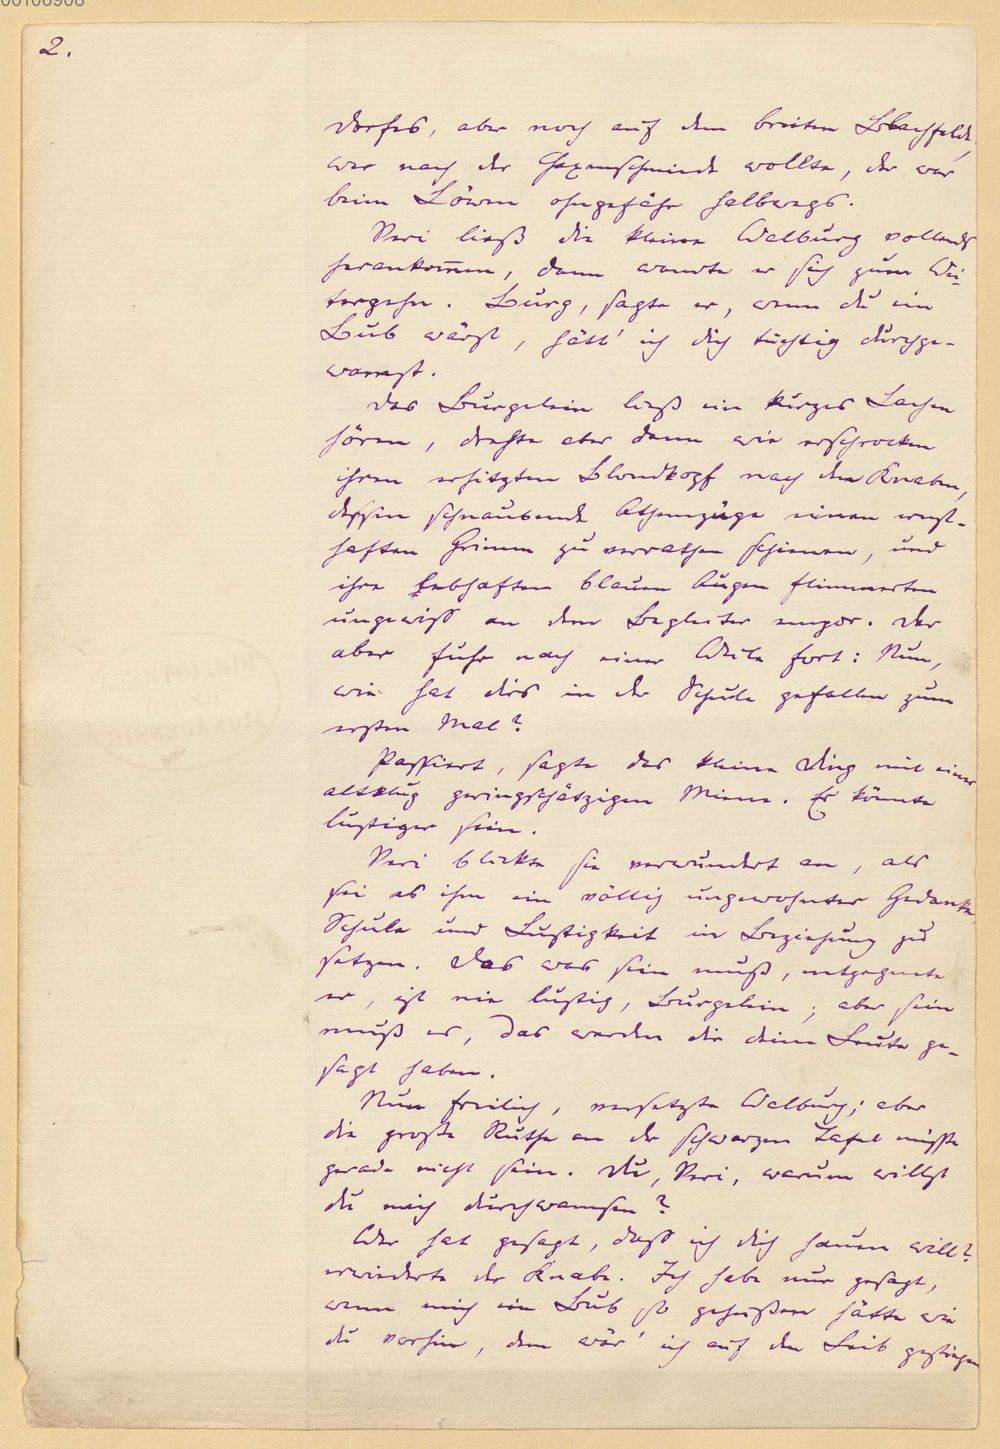 2.
Dorfes, aber noch auf dem breiten Lechfelde,
wer nach der Hexenschmiede wollte, der war
beim Löwen ohngefähr halbwegs.
Veri ließ die kleine Walburg vollends
herankommen, dann wandte er sich zum Wei-
tergehn. Burg, sagte er, wenn du ein
Bub wärst, hätt' ich dich tüchtig durchge-
wamst.
Das Burgelein ließ ein kurzes Lachen
hören, drehte aber dann wie erschrocken
ihren erhitzten Blondkopf nach dem Knaben,
dessen schnaubende Athemzüge einen ernst-
haften Grimm zu verrathen schienen, und
ihre lebhaften blauen Augen flimmerten
ungewiss an dem Begleiter empor. Der
aber fuhr nach einer Weile fort: Nun,
wie hat dirs in der Schule gefallen zum
ersten Mal?
Passiert, sagte das kleine Ding mit einer
altklug geringschätzigen Miene. Es könnte
lustiger sein.
Veri blickte sie verwundert an, als
sei es ihm ein völlig ungewohnter Gedanke
Schule und Lustigkeit in Beziehung zu
setzen. Das was sein muß, entgegnete
er, ist nie lustig, Burgelein; aber sein
muß es, das werden dir deine Leute ge-
sagt haben.
Nun freilich, versetzte Walburg; aber
die große Ruthe an der schwarzen Tafel müßte
gerade nicht sein. Du, Veri, warum willst
du mich durchwamsen?
Wer hat gesagt, dass ich dich hauen will?
erwiederte der Knabe. Ich habe nur gesagt,
wenn mich ein Bub so geheißen hätte wie
du vorhin, dem wär' ich auf den Leib gestiegen